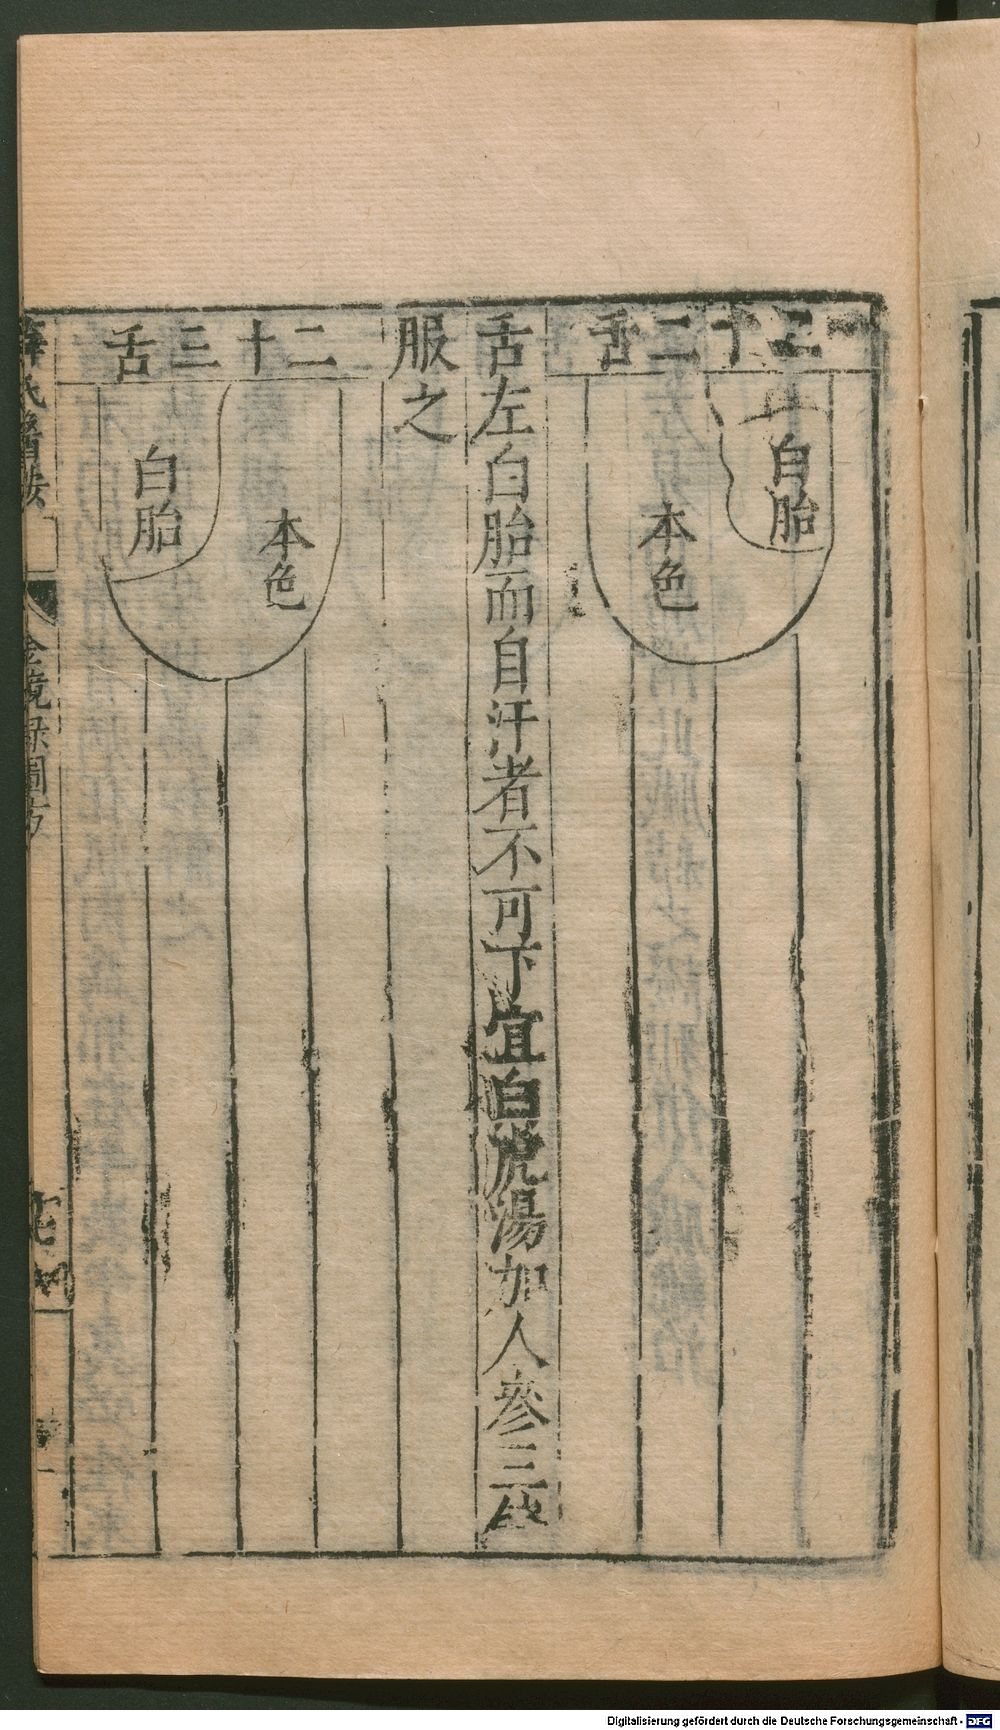 二十二舌
白胎
本色
舌左白胎而自汗者不可下宜白虎湯加人參三錢
服之
二十三舌
本色
白胎
薛氏醫按
金鏡録圖方
Digitalisierung gefördert durch die Deutsche Forschungsgemeinschaft - DFG